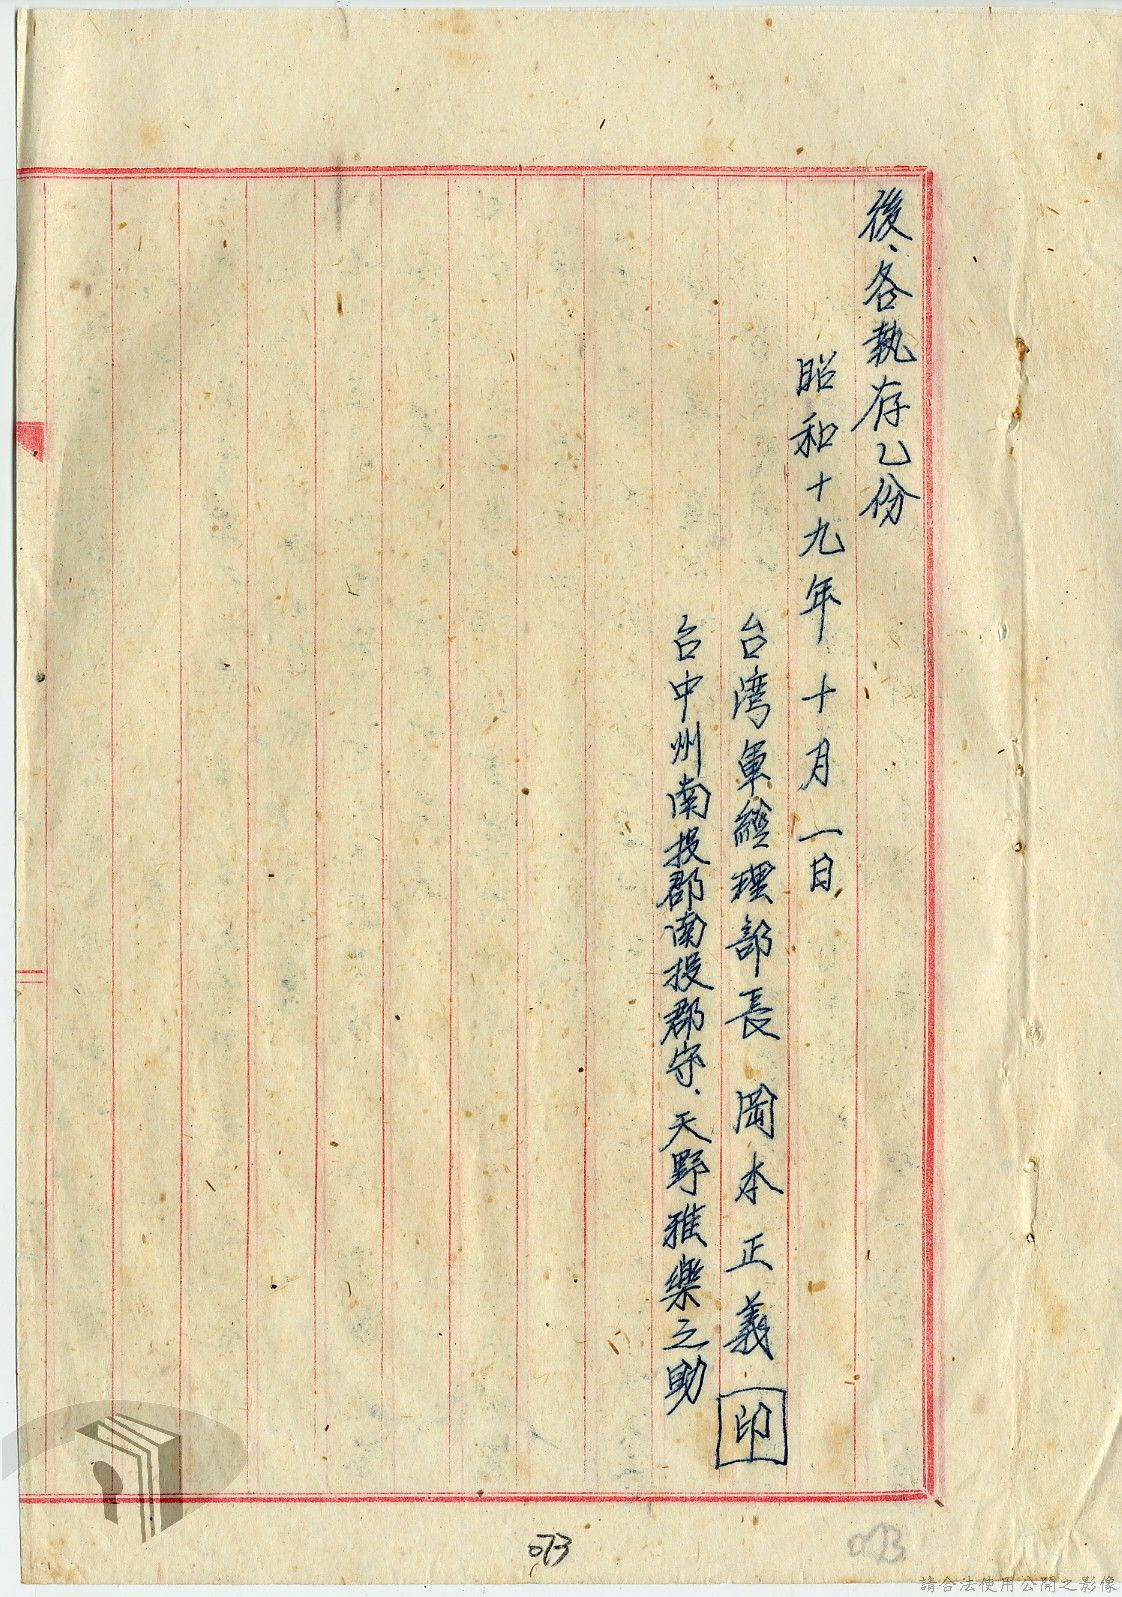 後、各執存乙份
昭和十九年十月一日
台湾軍經理部長 岡本正義 印
台中州南投郡南投郡守、天野雅樂之助
073
073
請合法使用公開之影像